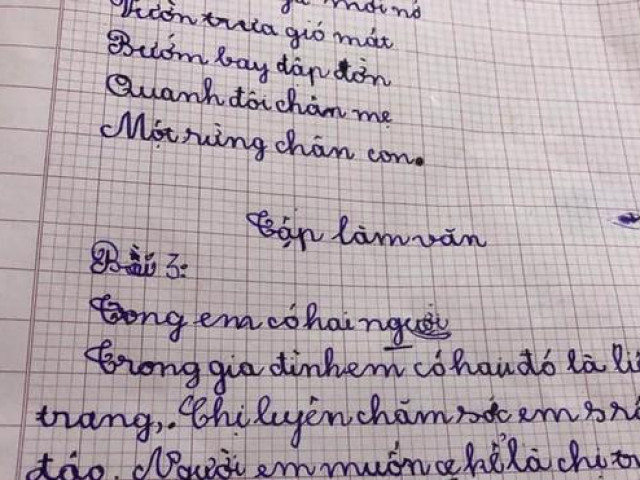 mới nở
Vườn trưa gió mát
Bướm bay dập dờn
Quanh đôi chân mẹ
Một rừng chân con.
Tập làm văn
Bài 3:
Trong em có hai người
Trong gia đình em có hai đó là
trang,. Chị luyên chăm sóc em
đáo. Người em muốn kể là chị